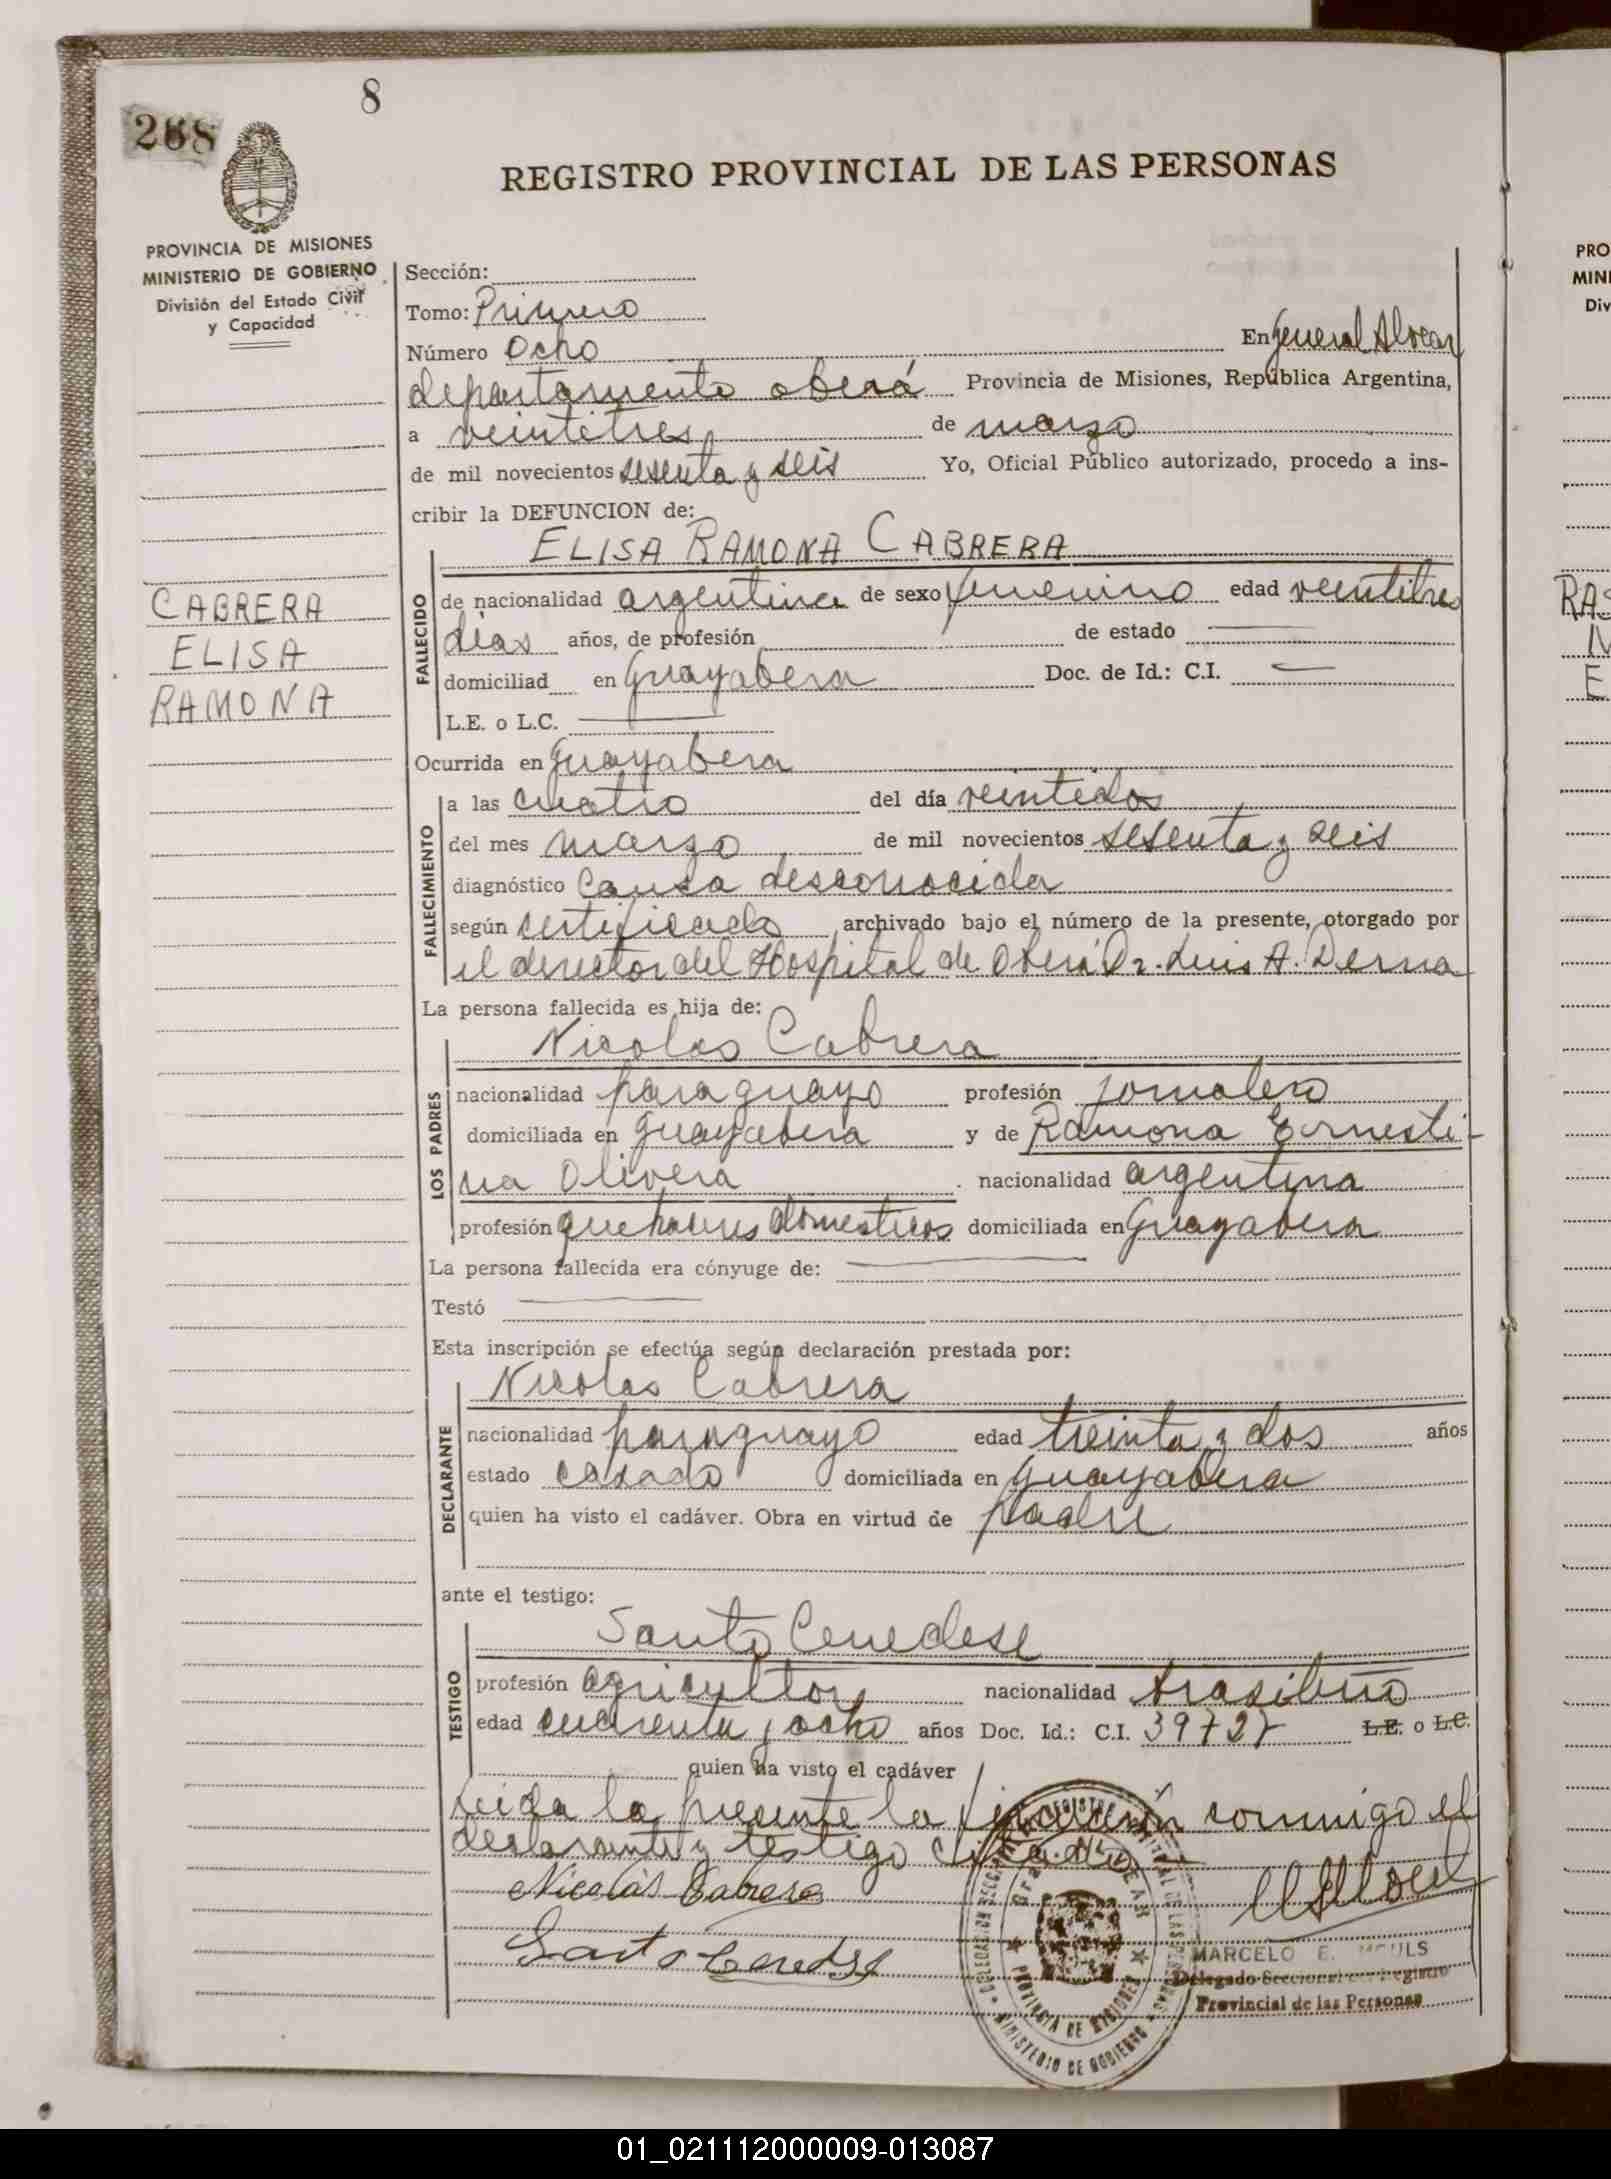 8
268
REGISTRO PROVINCIAL DE LAS PERSONAS
PROVINCIA DE MISIONES
MINISTERIO DE GOBIERNO
División del Estado Civil
y Capacidad
Sección:
Tomo: Primero
Número Ocho En General Alvear
departamento oberá Provincia de Misiones, República Argentina,
a veintitres de marzo
de mil novecientos sesenta y seis Yo, Oficial Público autorizado, procedo a ins-
cribir la DEFUNCION de:
ELISA RAMONA CABRERA
CABRERA
ELISA
RAMONA
FALLECIDO
de nacionalidad argentina de sexo femenino edad veintitres
dias años, de profesión de estado
domiciliad en Guayabera Doc. de Id.: C.I.
L.E. o L.C.
Ocurrida en guayabera
FALLECIMIENTO
a las cuatro del día veintidos
del mes marzo de mil novecientos sesenta y seis
diagnóstico Causa desconocida
según certificado archivado bajo el número de la presente, otorgado por
el director del Hospital de Oberá Dr. Luis A. Derna
La persona fallecida es hija de:
Nicolas Cabrera
LOS PADRES
nacionalidad paraguayo profesión jornalero
domiciliada en guayabera y de Ramona Ernesti-
na Olivera nacionalidad argentina
profesión quehaceres domesticos domiciliada en Guayabera
La persona fallecida era cónyuge de:
Testó
Esta inscripción se efectúa según declaración prestada por:
Nicolas Cabrera
DECLARANTE
nacionalidad paraguayo edad treinta y dos años
estado casado domiciliada en guayabera
quien ha visto el cadáver. Obra en virtud de padre
ante el testigo:
Santo Cenedese
TESTIGO
profesión agricultor nacionalidad brasileño
edad cuarenta y ocho años Doc. Id.: C.I. 39727 L.E. o L.C.
quien ha visto el cadáver
Leida la presente la firman conmigo el
declarante y testigo citado
Nicolás Cabrera
Santo Cenedese
MARCELO E.
Delegado Seccional del Registro
Provincial de las Personas
PROVINCIA DE MISIONES
MINISTERIO DE GOBIERNO
PRO
MINI
Div
RAS
N
E
01_021112000009-013087